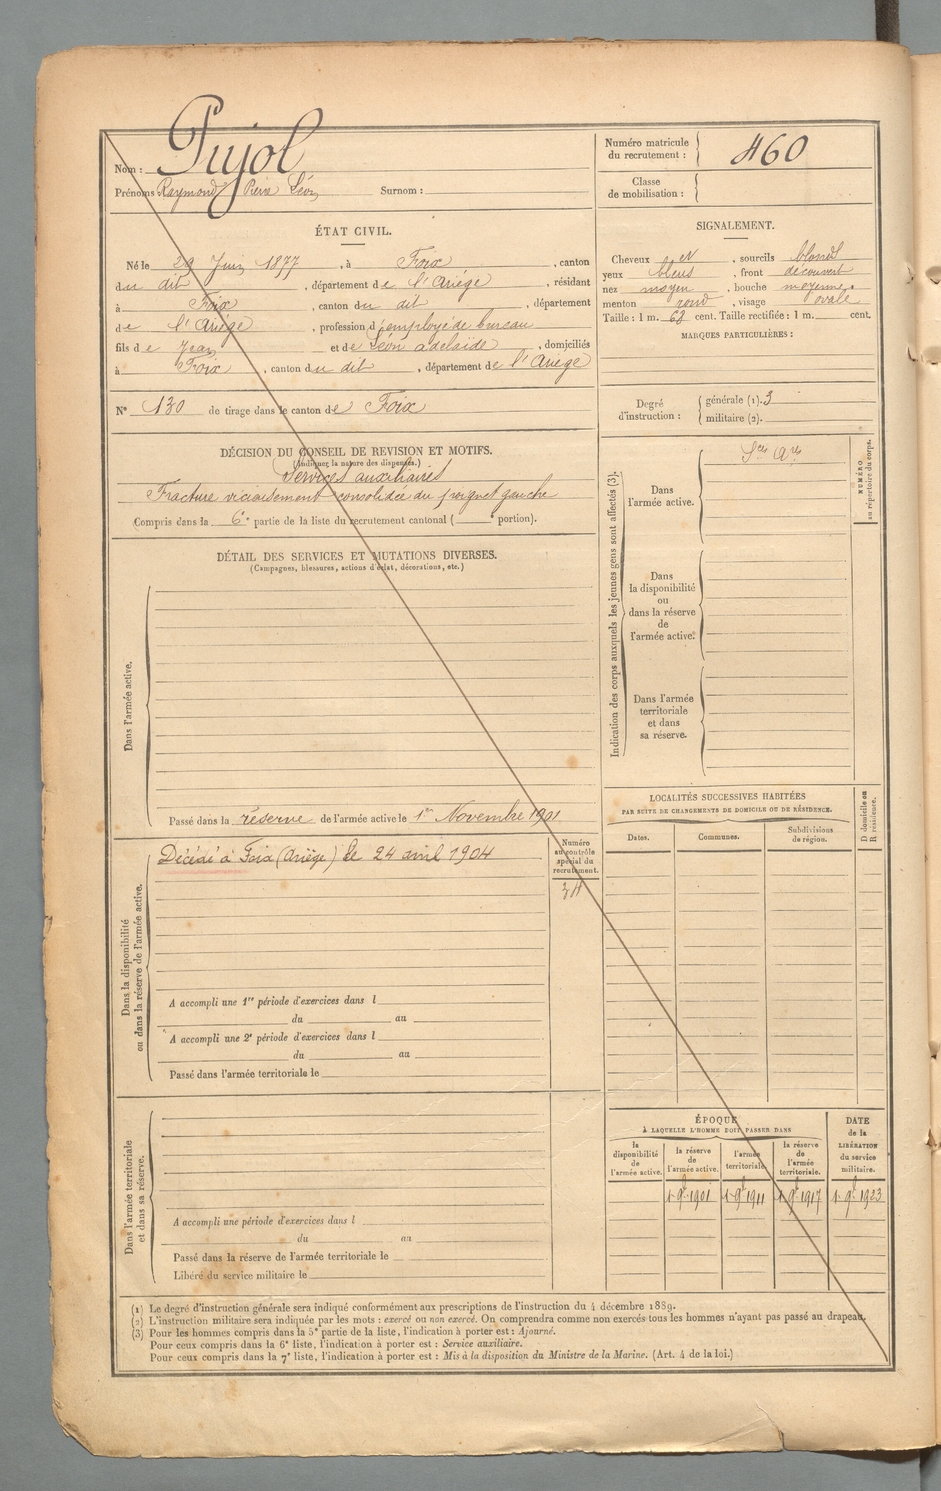 Nom : Pujol
Prénoms Raymond Pierre Léon Surnom :
Numéro matricule du recrutement : 460
Classe de mobilisation :
ÉTAT CIVIL.
Né le 29 Juin 1877, à Foix, canton
du dit, département de l'Ariège, résidant
à Foix, canton du dit, département
de l'Ariège, profession d'employé de bureau
fils de Jean et de Léon adelaïde, domiciliés
à Foix, canton du dit, département de l'Ariège
SIGNALEMENT.
Cheveux et, sourcils blonds
yeux bleus, front découvert
nez moyen, bouche moyenne.
menton rond, visage ovale
Taille : 1 m. 68 cent. Taille rectifiée : 1 m. cent.
MARQUES PARTICULIÈRES :
N° 130 de tirage dans le canton de Foix
Degré d'instruction : générale (1). 3
militaire (2).
DÉCISION DU CONSEIL DE REVISION ET MOTIFS.
(Indiquez la nature des dispenses.)
Services auxiliaires
Fracture vicieusement consolidée du poignet gauche
Compris dans la 6e partie de la liste du recrutement cantonal ( e portion).
DÉTAIL DES SERVICES ET MUTATIONS DIVERSES.
(Campagnes, blessures, actions d'éclat, décorations, etc.)
Dans l'armée active.
Passé dans la réserve de l'armée active le 1er Novembre 1901
Dans la disponibilité
ou dans la réserve de l'armée active.
Décédé à Foix (Ariège) le 24 avril 1904
Numéro
au contrôle
spécial du
recrutement.
34
A accompli une 1re période d'exercices dans l
du au
A accompli une 2e période d'exercices dans l
du au
Passé dans l'armée territoriale le
Dans l'armée territoriale
et dans sa réserve.
A accompli une période d'exercices dans l
du au
Passé dans la réserve de l'armée territoriale le
Libéré du service militaire le
Indication des corps auxquels les jeunes gens sont affectés (3).
NUMÉRO
au répertoire du corps.
Dans
l'armée active.
Sces Ares
Dans
la disponibilité
ou
dans la réserve
de
l'armée active.
Dans l'armée
territoriale
et dans
sa réserve.
LOCALITÉS SUCCESSIVES HABITÉES
PAR SUITE DE CHANGEMENTS DE DOMICILE OU DE RÉSIDENCE.
D domicile ou
R résidence.
Dates. Communes. Subdivisions
de région.
ÉPOQUE
À LAQUELLE L'HOMME DOIT PASSER DANS
la
disponibilité
de
l'armée active.
la réserve
de
l'armée active.
l'armée
territoriale.
la réserve
de
l'armée
territoriale.
DATE
de la
LIBÉRATION
du service
militaire.
1 9bre 1901 1 9bre 1911 1 9bre 1917 1 9bre 1923
(1) Le degré d'instruction générale sera indiqué conformément aux prescriptions de l'instruction du 4 décembre 1889.
(2) L'instruction militaire sera indiquée par les mots : exercé ou non exercé. On comprendra comme non exercés tous les hommes n'ayant pas passé au drapeau.
(3) Pour les hommes compris dans la 5e partie de la liste, l'indication à porter est : Ajourné.
Pour ceux compris dans la 6e liste, l'indication à porter est : Service auxiliaire.
Pour ceux compris dans la 7e liste, l'indication à porter est : Mis à la disposition du Ministre de la Marine. (Art. 4 de la loi.)